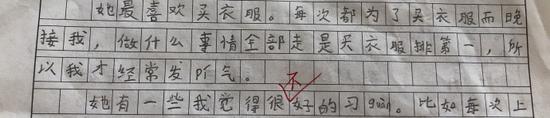 她最喜欢买衣服。每次都为了买衣服而晚
接我,做什么事情全部走是买衣服排第一,所
以我才经常发pí气。
不
她有一些我觉得很好的习guàn。比如每次上